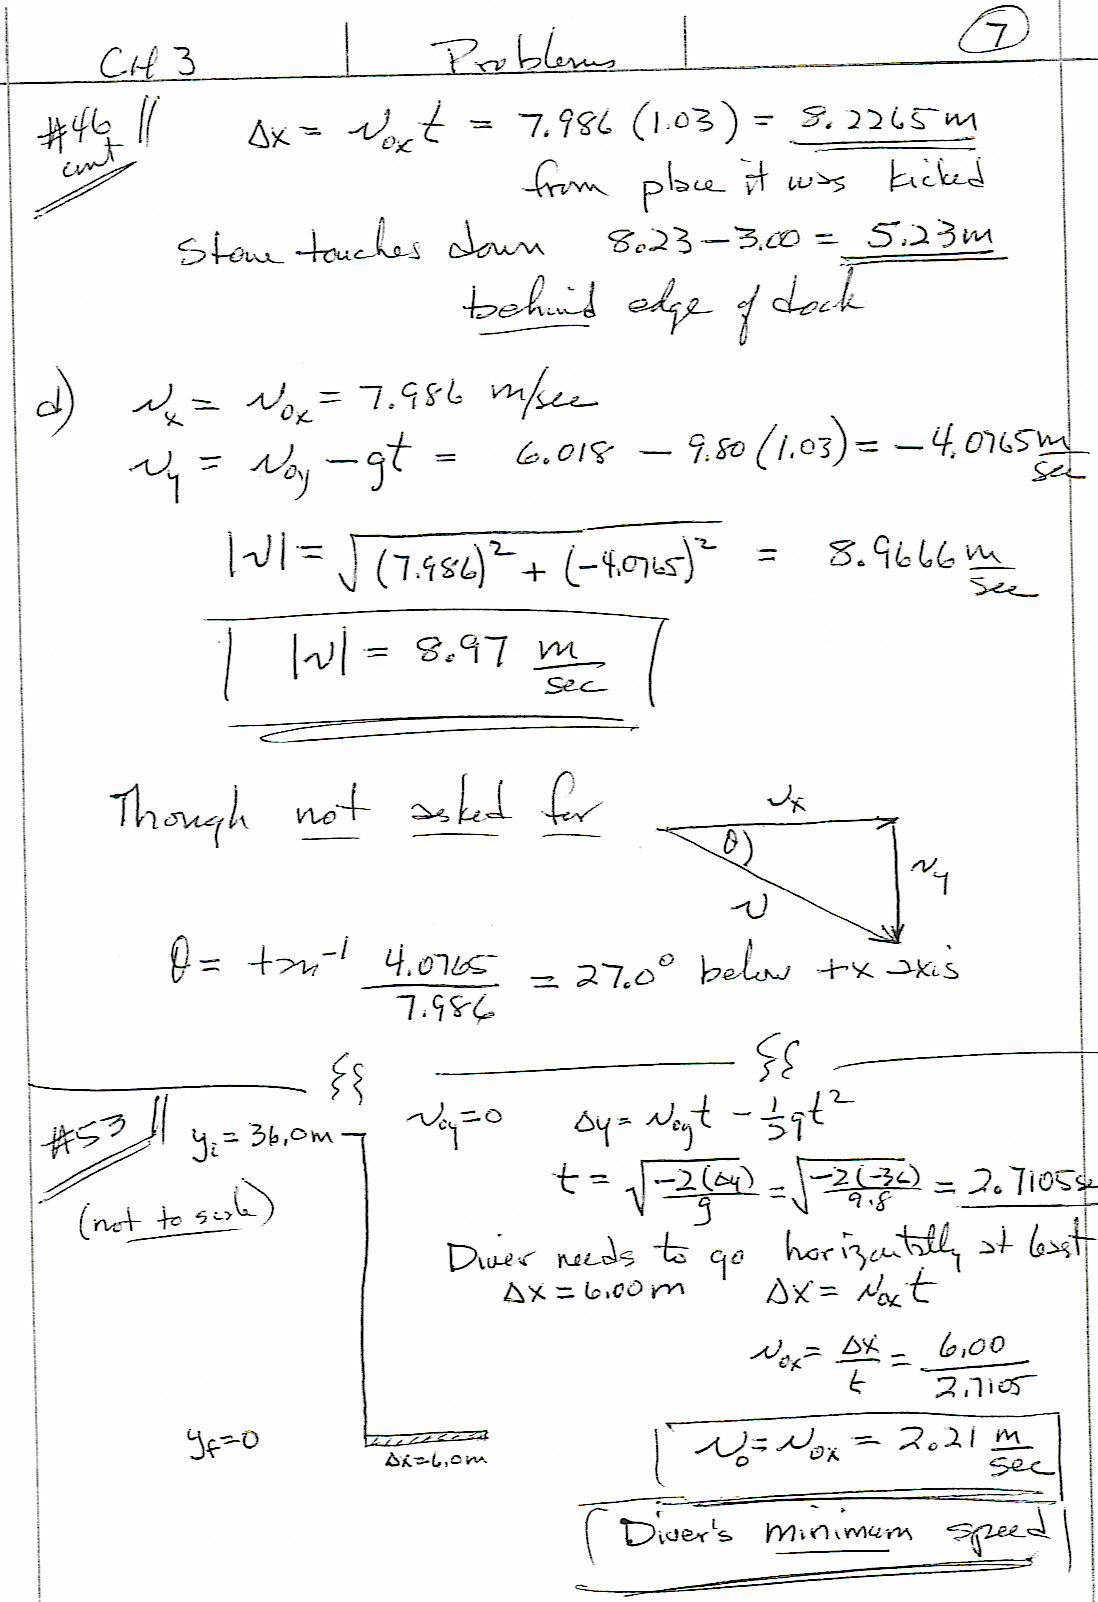 CH 3 | Problems | 7
#46 cont Δx = v₀ₓt = 7.986 (1.03) = 8.2265 m
from place it was kicked
Stone touches down 8.23 – 3.00 = 5.23 m
behind edge of dock
d) vₓ = v₀ₓ = 7.986 m/sec
v_y = v₀y – gt = 6.018 – 9.80 (1.03) = –4.0765 m/sec
|v| = √((7.986)² + (–4.0765)²) = 8.9666 m/sec
|v| = 8.97 m/sec
Though not asked for
vₓ
θ
v_y
v
θ = tan⁻¹ 4.0765/7.986 = 27.0° below +x axis
#53 yᵢ = 36.0m v₀y=0 Δy = v₀yt – ½gt²
(not to scale) t = √(–2(Δy)/g) = √(–2(–36)/9.8) = 2.7105 se
Diver needs to go horizontally at least
Δx = 6.00 m Δx = v₀ₓt
v₀ₓ = Δx/t = 6.00/2.7105
y_f=0 Δx=6.0m v₀ = v₀ₓ = 2.21 m/sec
Diver's minimum speed